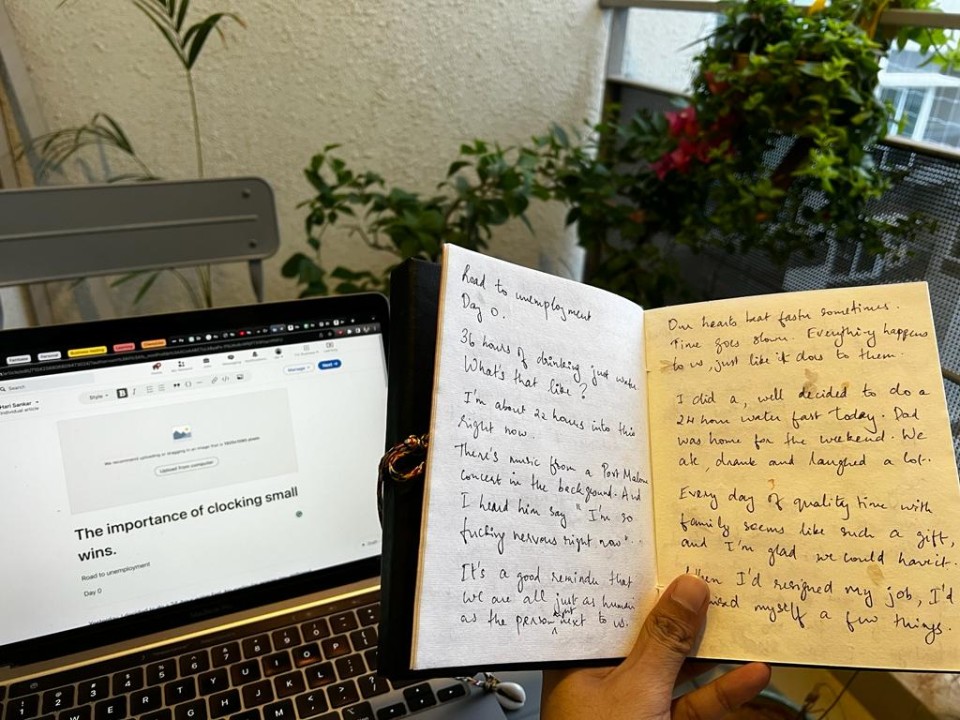 Search
Hari Sankar
Individual article
Style
B
I
Manage
Next
We recommend uploading or dragging in an image that is 1920x1080 pixels
Upload from computer
The importance of clocking small
wins.
Road to unemployment
Day 0
Road to unemployment
Day 0.
36 hours of drinking just water.
What's that like?
I'm about 22 hours into this
right now.
There's music from a Post Malone
concert in the background. And
I heard him say "I'm so
fucking nervous right now".
It's a good reminder that
we are all just as human
as the person next to us.
Our hearts beat faster sometimes.
Time goes slower. Everything happens
to us, just like it does to them.
I did a, well decided to do a
24 hour water fast today. Dad
was home for the weekend. We
ate, drank and laughed a lot.
Every day of quality time with
family seems like such a gift,
and I'm glad we could have it.
When I'd resigned my job, I'd
myself a few things.